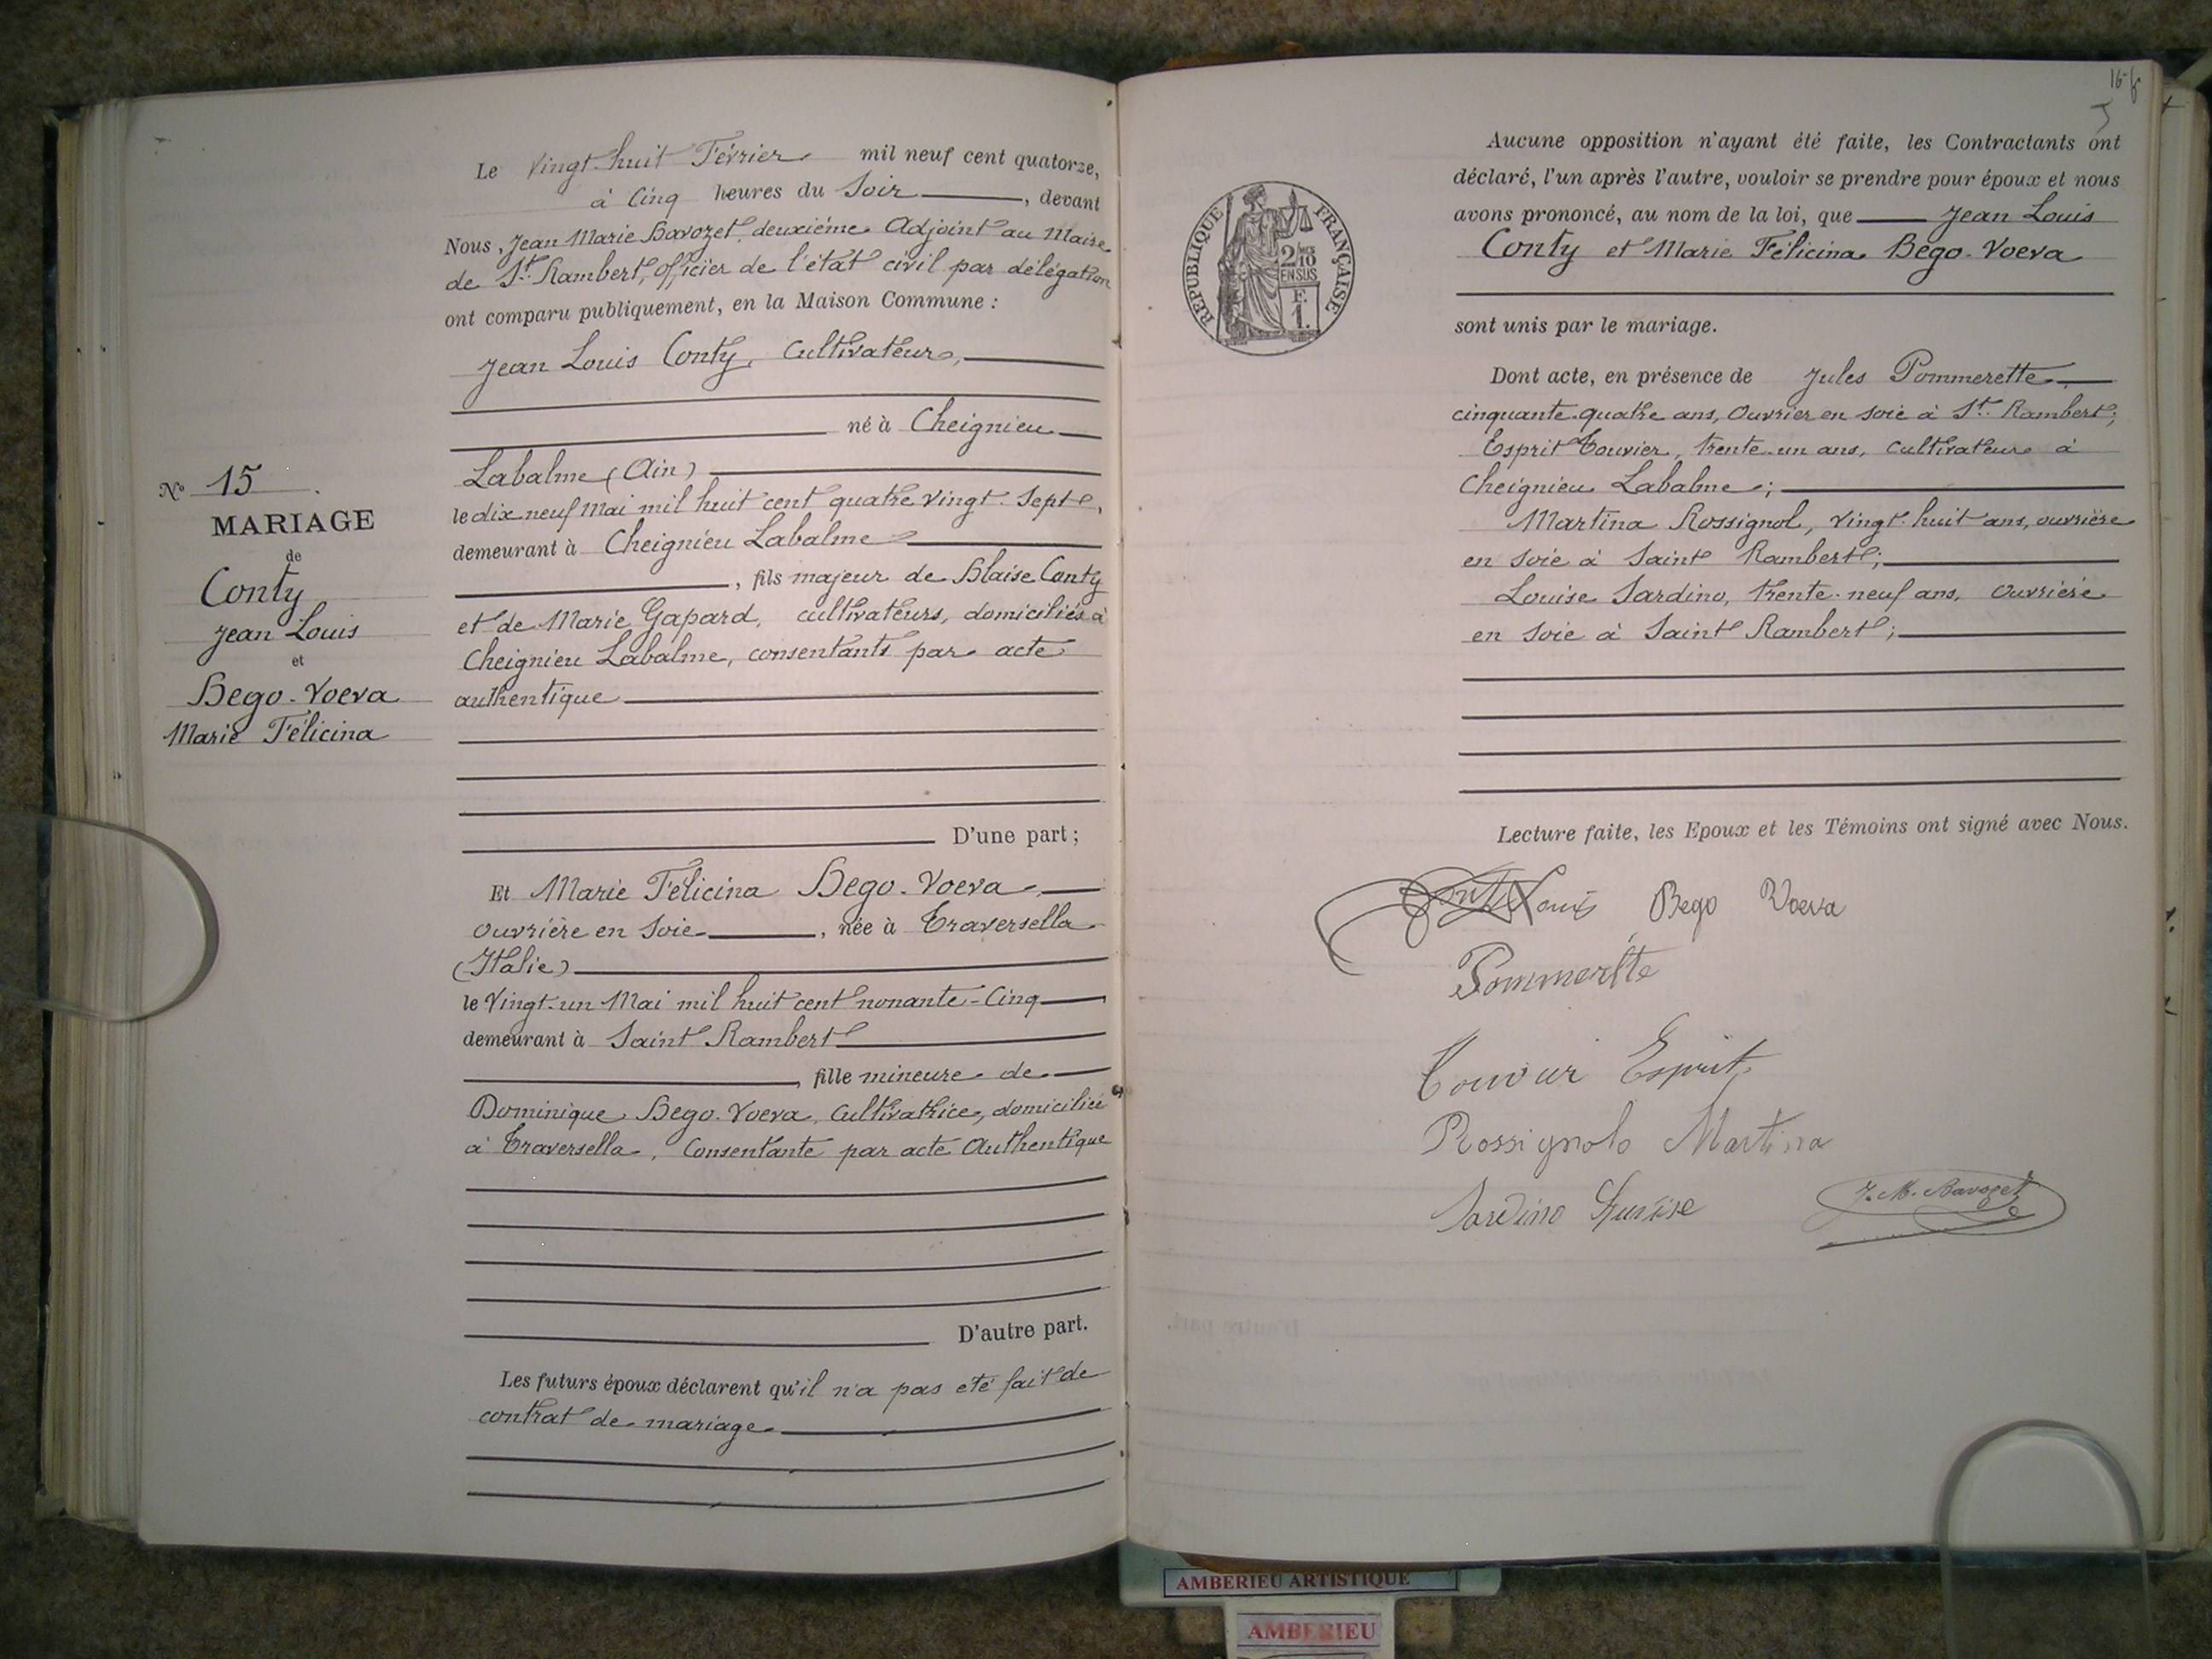 Nº 15
MARIAGE
de
Conty
Jean Louis
et
Bego-Voeva
Marie Félicina
Le Vingt-huit Février mil neuf cent quatorze,
à Cinq heures du Soir, devant
Nous, Jean Marie Bavozet, deuxième Adjoint au Maire
de St. Rambert, officier de l'état civil par délégation
ont comparu publiquement, en la Maison Commune :
Jean Louis Conty, Cultivateur,
né à Cheignieu
Labalme (Ain)
le dix neuf Mai mil huit cent quatre vingt-Sept,
demeurant à Cheignieu Labalme
, fils majeur de Blaise Conty
et de Marie Gapard, cultivateurs, domiciliés à
Cheignieu Labalme, consentants par acte
authentique
D'une part ;
Et Marie Félicina Bego-Voeva,
Ouvrière en Soie, née à Traversella
(Italie)
le Vingt-un Mai mil huit cent nonante-Cinq
demeurant à Saint Rambert
, fille mineure de
Dominique Bego-Voeva, Cultivatrice, domiciliée
à Traversella, Consentante par acte Authentique
D'autre part.
Les futurs époux déclarent qu'il n'a pas été fait de
contrat de mariage
REPUBLIQUE FRANÇAISE
2/10
EN SUS
F.
1.
Aucune opposition n'ayant été faite, les Contractants ont
déclaré, l'un après l'autre, vouloir se prendre pour époux et nous
avons prononcé, au nom de la loi, que Jean Louis
Conty et Marie Félicina Bego-Voeva
sont unis par le mariage.
Dont acte, en présence de Jules Pommerette,
cinquante-quatre ans, Ouvrier en soie à St. Rambert;
Esprit Touvier, trente-un ans, Cultivateur à
Cheignieu Labalme;
Martina Rossignol, vingt-huit ans, ouvrière
en Soie à Saint Rambert;
Louise Sardino, trente-neuf ans, Ouvrière
en Soie à Saint Rambert;
Lecture faite, les Epoux et les Témoins ont signé avec Nous.
Conty Louis Bego Voeva
Pommerette
Touvier Esprit
Rossignolo Martina
Sardino
J. M. Bavozet
AMBERIEU ARTISTIQUE
AMBERIEU